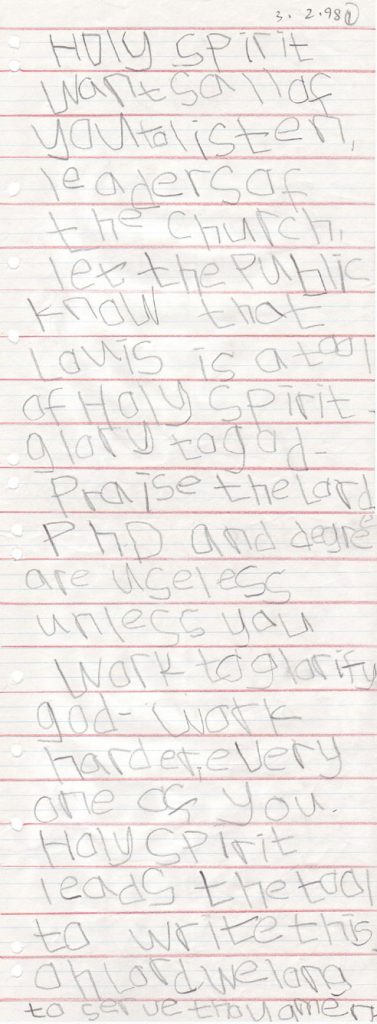 3. 2.98 1
Holy Spirit
wants all of
you to listen,
leaders of
the Church,
let the Public
know that
Louis is a tool
of Holy Spirit-
glory to god-
Praise the Lord
PhD and degree
are useless
unless you
work to glorify
god- work
harder, every
one as you.
Holy Spirit
leads the tool
to write this
oh lord we long
to serve thou amen